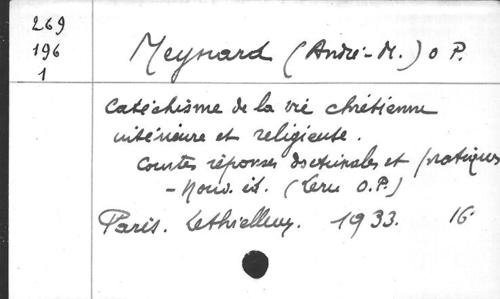 269
196
1
Meynard (André-M.) O P.
Catéchisme de la vie chrétienne
intérieure et religieuse.
Courtes réponses doctrinales et pratiques
- Nouv. éd. (Gerv O.P.)
Paris. Lethielleux. 1933. 16°